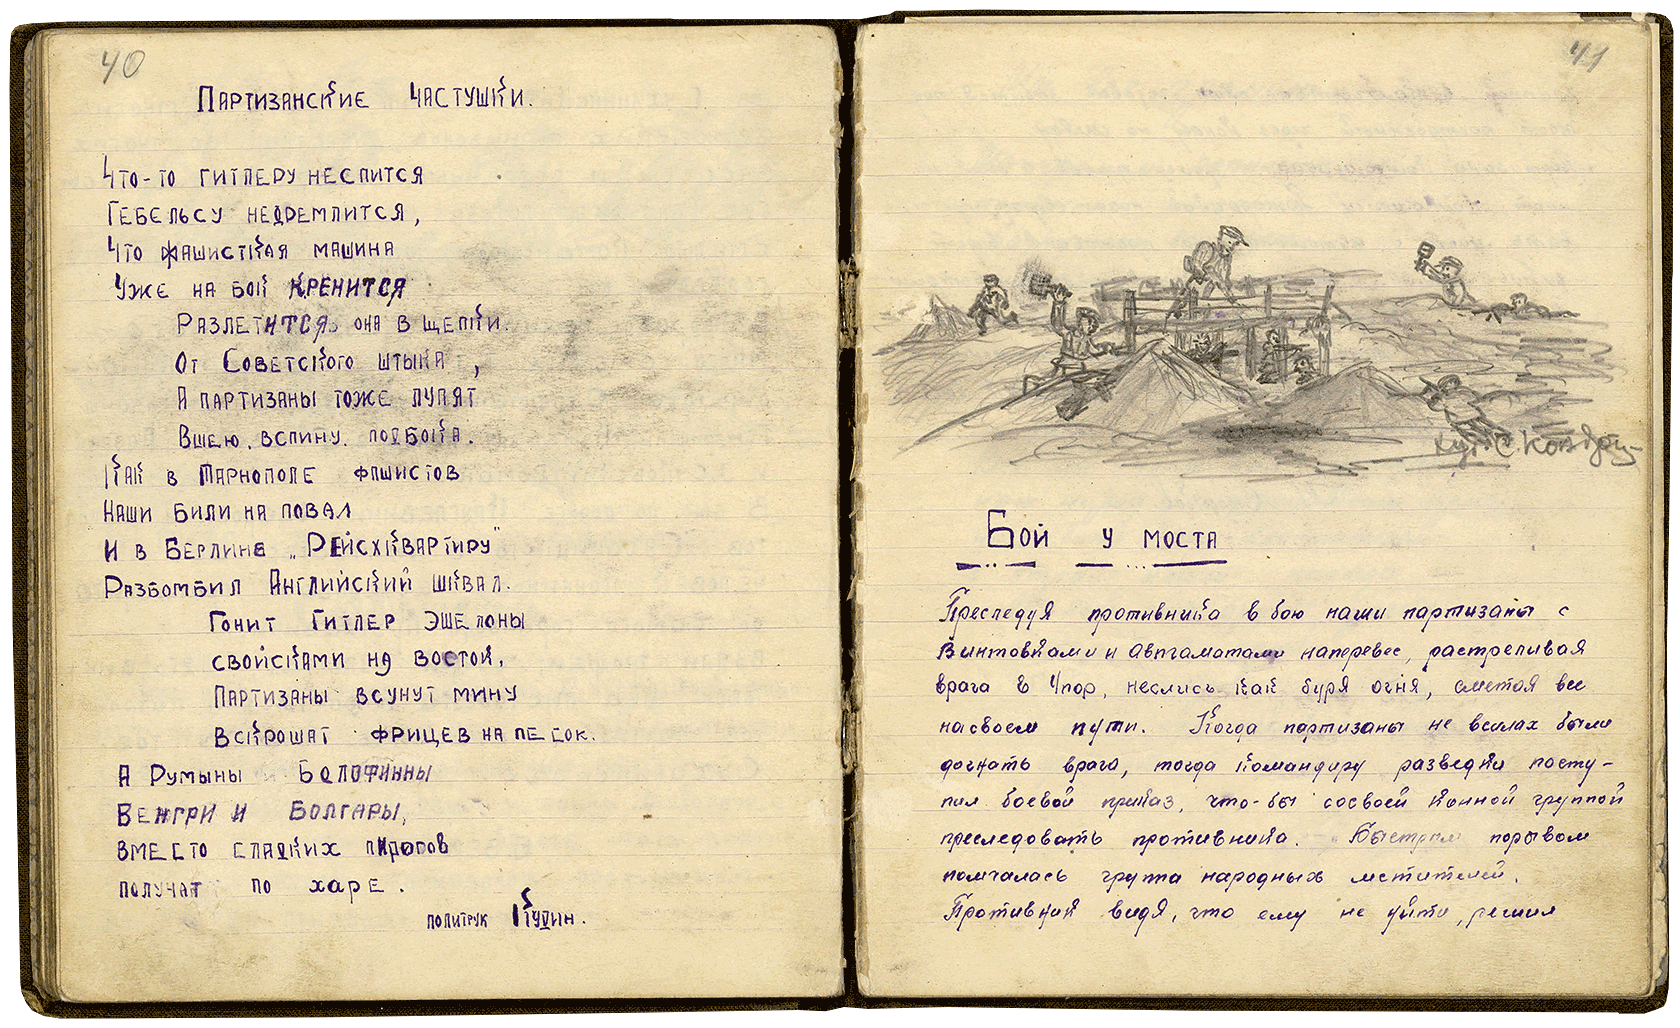 40
Партизанские частушки.
Что-то гитлеру неспится
Гебельсу недремлится,
Что фашисткая машина
Уже на бок кренится
Разлетится она в щепки.
От Советского штыка,
А партизаны тоже лупят
Вшею, вспину, подбока.
Как в Тарнополе фашистов
Наши били на повал
И в Берлине „Рейсхквартиру"
Разбомбил Английский шквал.
Гонит Гитлер эшелоны
свойсками на восток,
Партизаны всунут мину
Вскрошат фрицев на песок.
А Румыны и Белофинны
Венгри и Болгары,
вместо сладких пирогов
получат по харе.
политрук Кудин.
41
худ. С. Кондру
Бой у моста
Преследуя противника в бою наши партизаны с
Винтовками и автаматами наперевес, растреливая
врага в Упор, неслись как буря огня, сметая все
насвоем пути. Когда партизаны не всилах были
догнать врага, тогда командиру разведки посту-
пил боевой приказ, что-бы сосвоей конной группой
преследовать противника. Быстрым порывом
помчалась группа народных мстителей.
Противник видя, что ему не уйти, решил